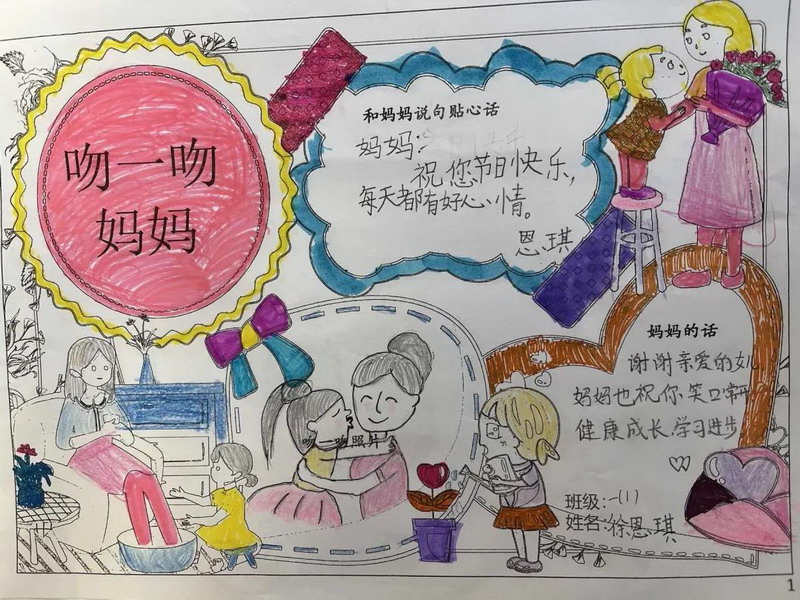 吻一吻
妈妈
和妈妈说句贴心话
妈妈:
祝您节日快乐,
每天都有好心情。
恩琪
吻一吻照片
妈妈的话
谢谢亲爱的女儿
妈妈也祝你笑口常开
健康成长学习进步
班级:一(1)
姓名:徐恩琪
1